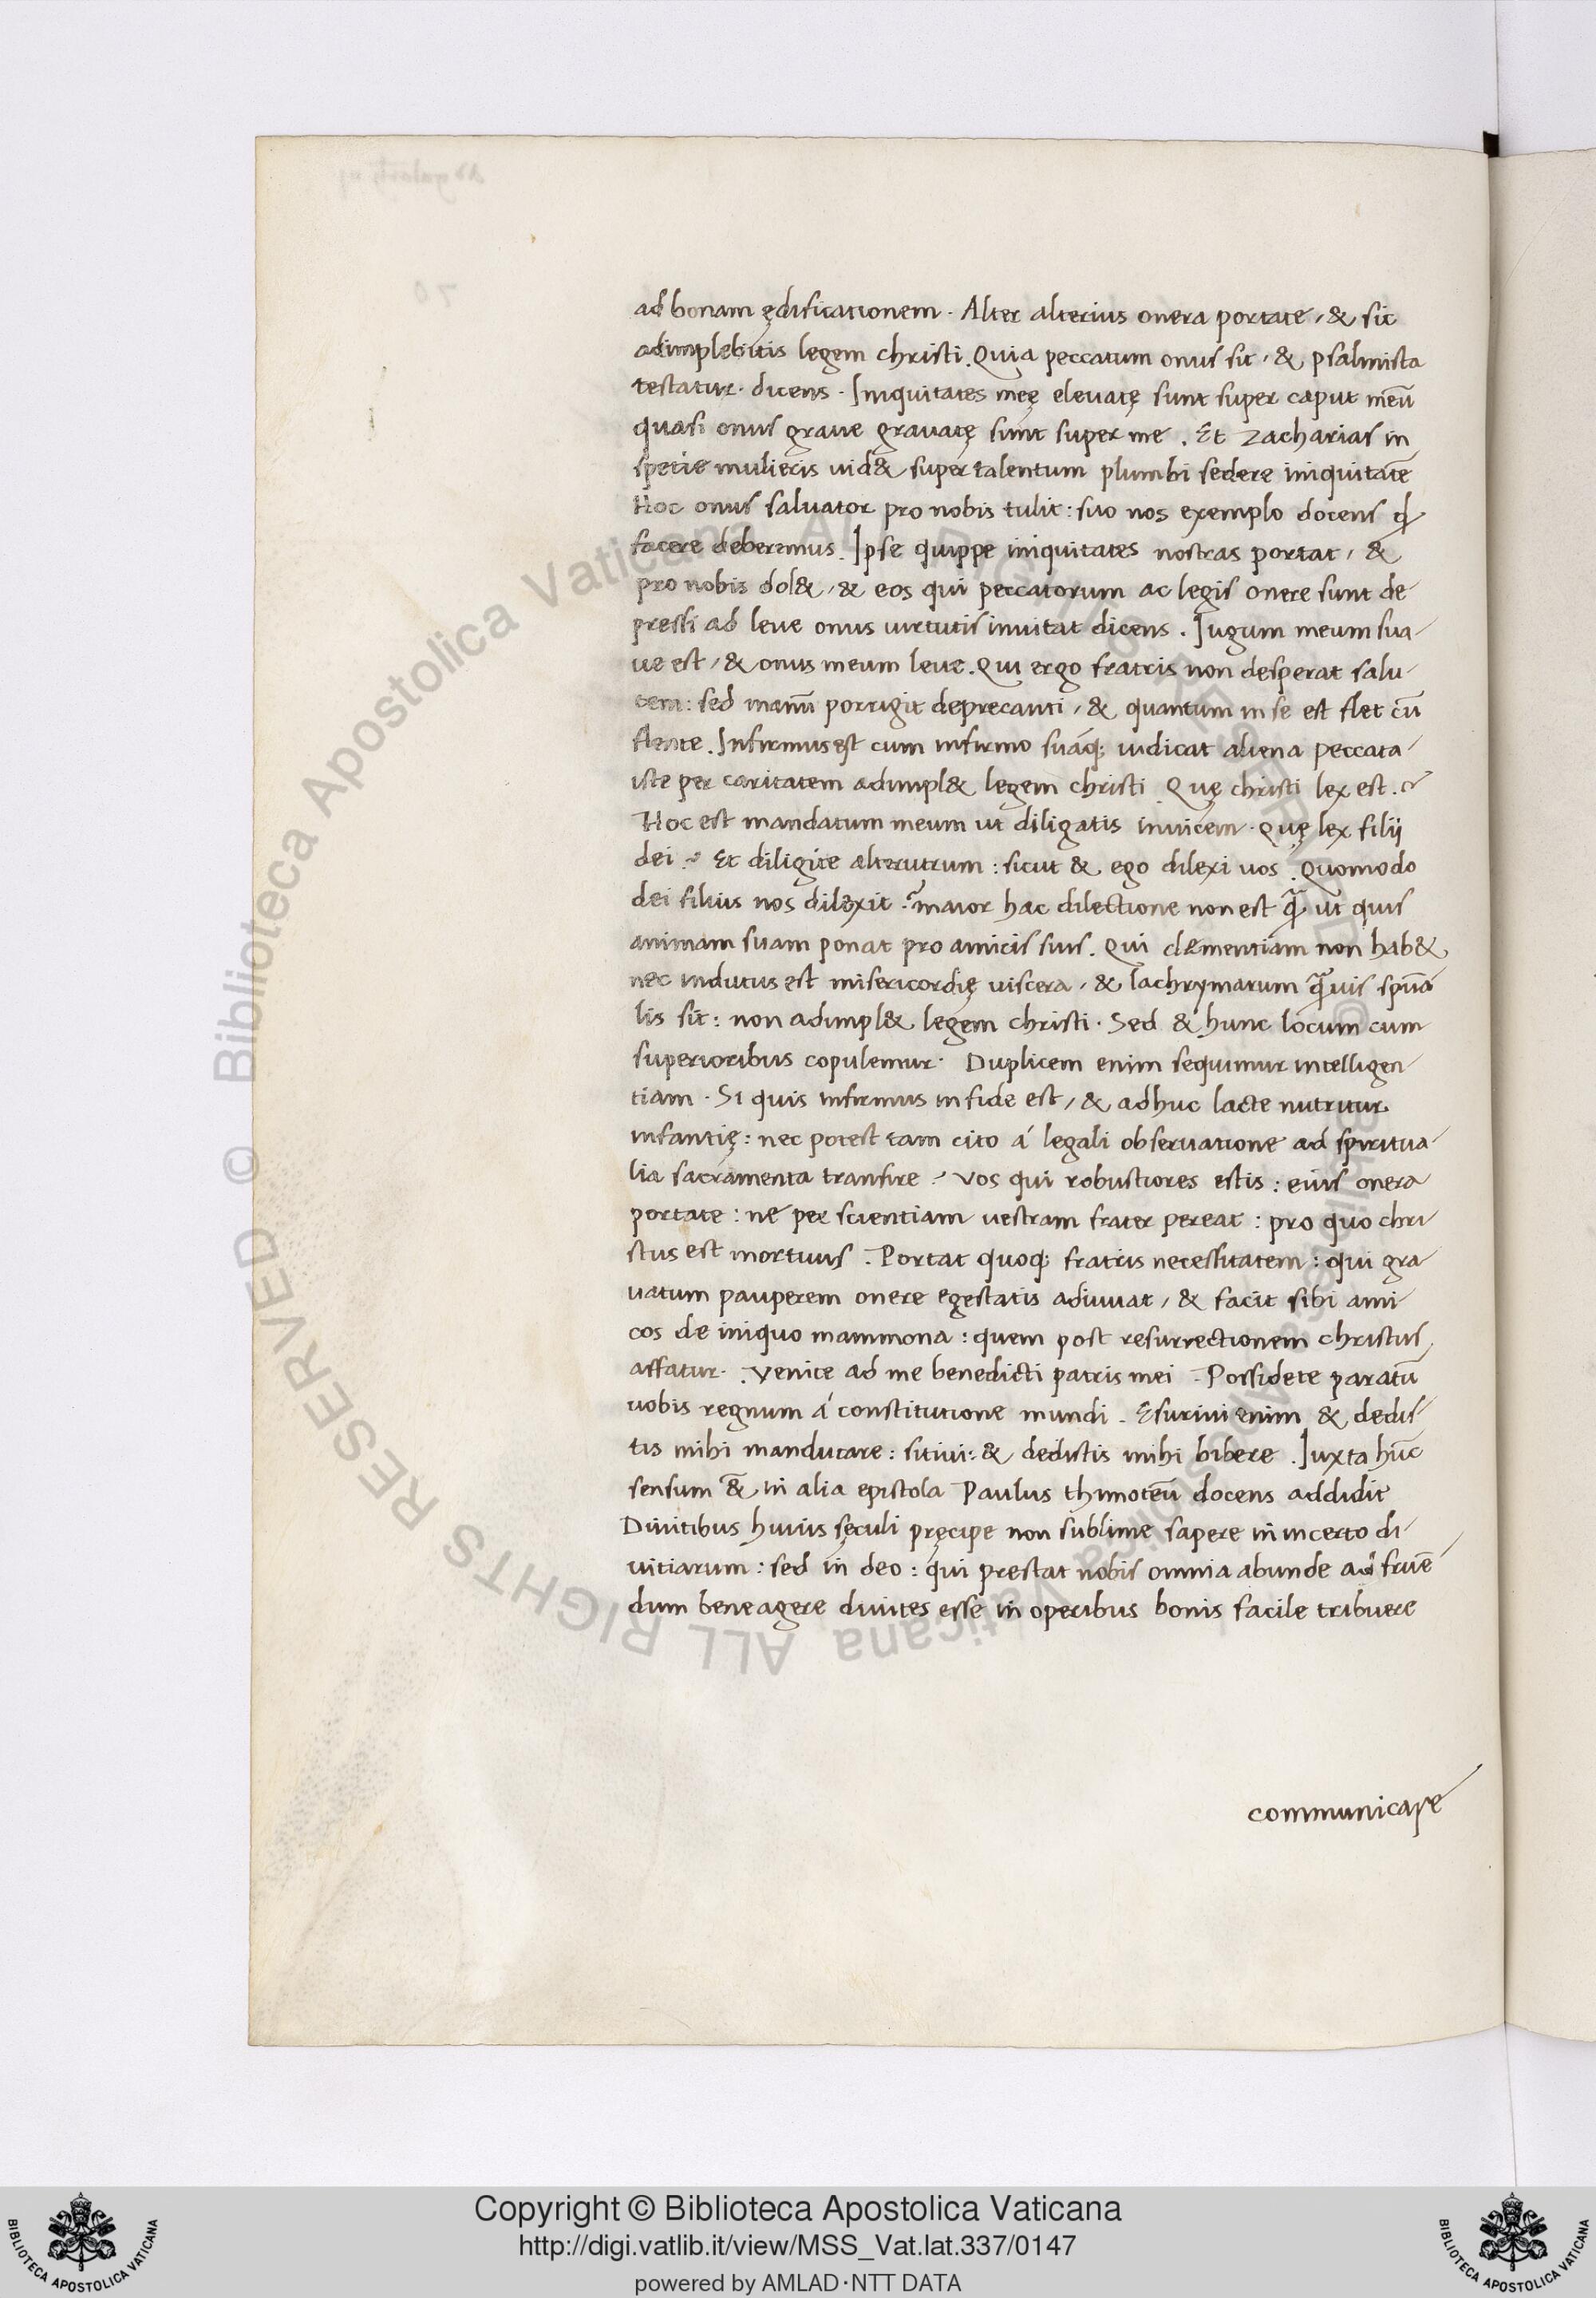 ad bonam ędificationem. Alter alterius onera portate, & sic
adimplebitis legem christi. Quia peccatum onus sit, & psalmista
testatur dicens. Iniquitates meę eleuatę sunt super caput meū
quasi onus graue grauatę sunt super me. Et Zacharias in
spetie mulieris uid& super talentum plumbi sedere iniquitatē
Hoc onus saluator pro nobis tulit: suo nos exemplo docens qđ
facere deberemus. Ipse quippe iniquitates nostras portat, &
pro nobis dol&, & eos qui peccatorum ac legis onere sunt de
pressi ad leue onus uirtutis inuitat dicens. Iugum meum sua-
ue est, & onus meum leue. Qui ergo fratris non desperat salu-
tem: sed manū porrigit deprecanti, & quantum in se est flet cū
flente. Infirmus est cum infirmo suáq; iudicat aliena peccata
iste per caritatem adimpl& legem christi. Quę christi lex est.
Hoc est mandatum meum ut diligatis inuicem. Quę lex filii
dei? Et diligite alterutrum: sicut & ego dilexi uos. Quomodo
dei filius nos dilexit? maior hac dilectione non est q̄ ut quis
animam suam ponat pro amicis suis. Qui clementiam non hab&
nec indutus est misericordię uiscera, & lachrymarum q̄uis spūa
lis sit: non adimpl& legem christi. Sed & hunc locum cum
superioribus copulemur. Duplicem enim sequimur intelligen-
tiam. Si quis infirmus in fide est, & adhuc lacte nutritur
infantię: nec potest tam cito á legali obseruatione ad spiritua-
lia sacramenta transire? Vos qui robustiores estis: eius onera
portate: ne per scientiam uestram frater pereat: pro quo chri
stus est mortuus. Portat quoq; fratris necessitatem: qui gra
uatum pauperem onere egestatis adiuuat, & facit sibi ami
cos de iniquo mammona: quem post resurrectionem christus
affatur. Venite ad me benedicti patris mei. Possidete paratū
uobis regnum á constitutione mundi. Esuriui enim & dedis-
tis mihi manducare: sitiui: & dedistis mihi bibere. Iuxta hūc
sensum &̄ in alia epistola Paulus thimoteū docens addidit
Diuitibus huius sęculi pręcipe non sublime sapere in incerto di-
uitiarum: sed in deo: qui prestat nobis omnia abunde ad fruē
dum bene agere diuites esse in operibus bonis facile tribuere
communicare
© Biblioteca Apostolica Vaticana ALL RIGHTS RESERVED © Biblioteca Apostolica Vaticana ALL RIGHTS RESERVED
Copyright © Biblioteca Apostolica Vaticana
http://digi.vatlib.it/view/MSS_Vat.lat.337/0147
powered by AMLAD·NTT DATA
BIBLIOTECA APOSTOLICA VATICANA
BIBLIOTECA APOSTOLICA VATICANA